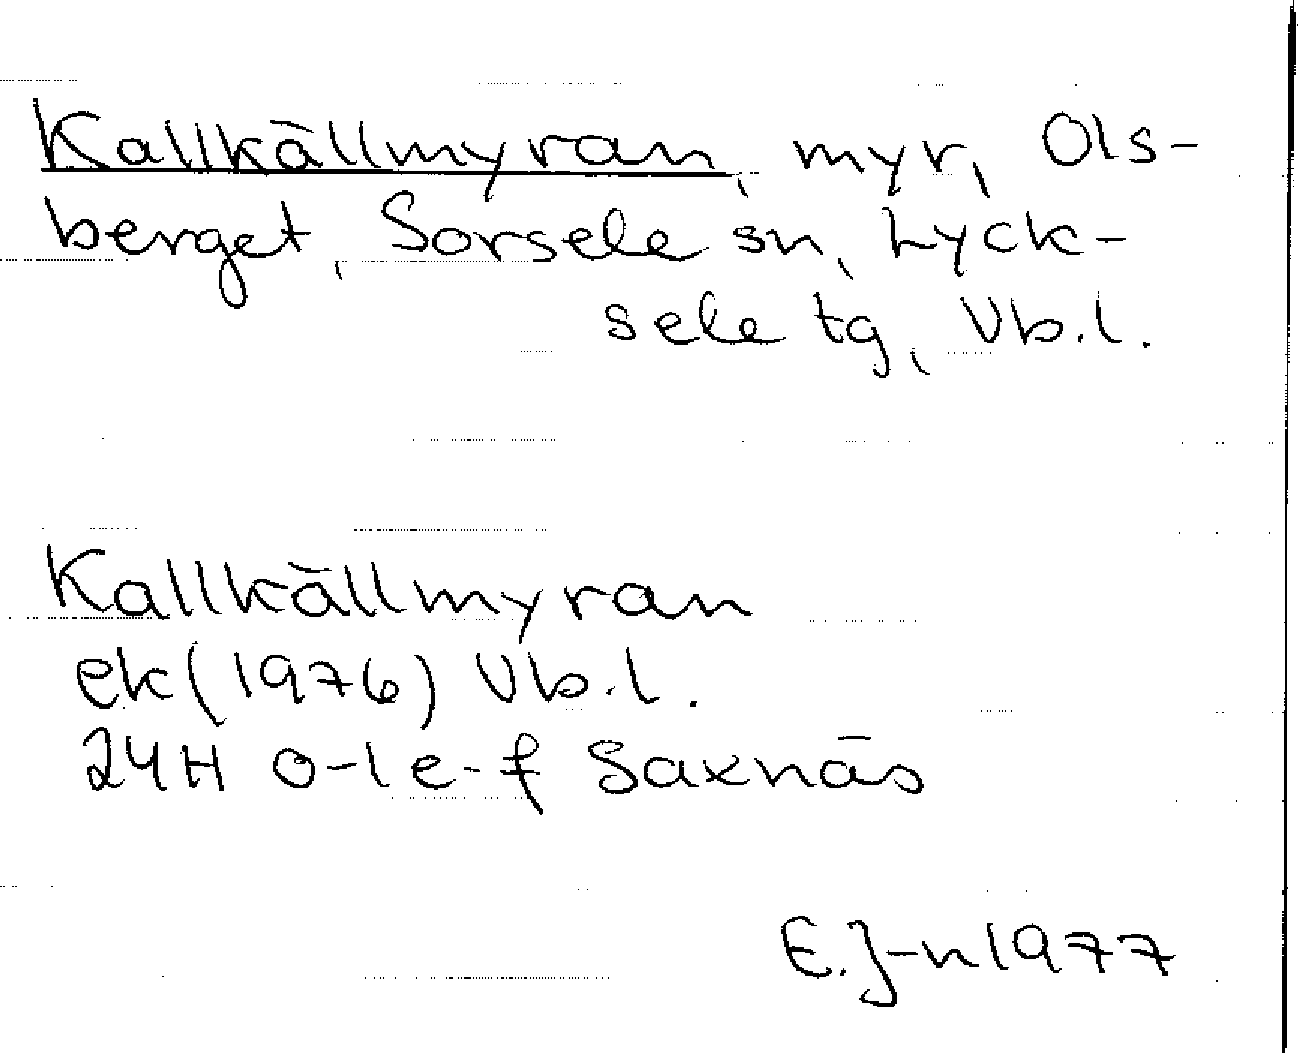 Kallkällmyran, myr, Ols-
berget, Sorsele sn, Lyck-
sele tg, Vb.l.
Kallkällmyran
ek(1976) Vb.l.
24H 0-1 e-f Saxnäs
E.J-n 1977